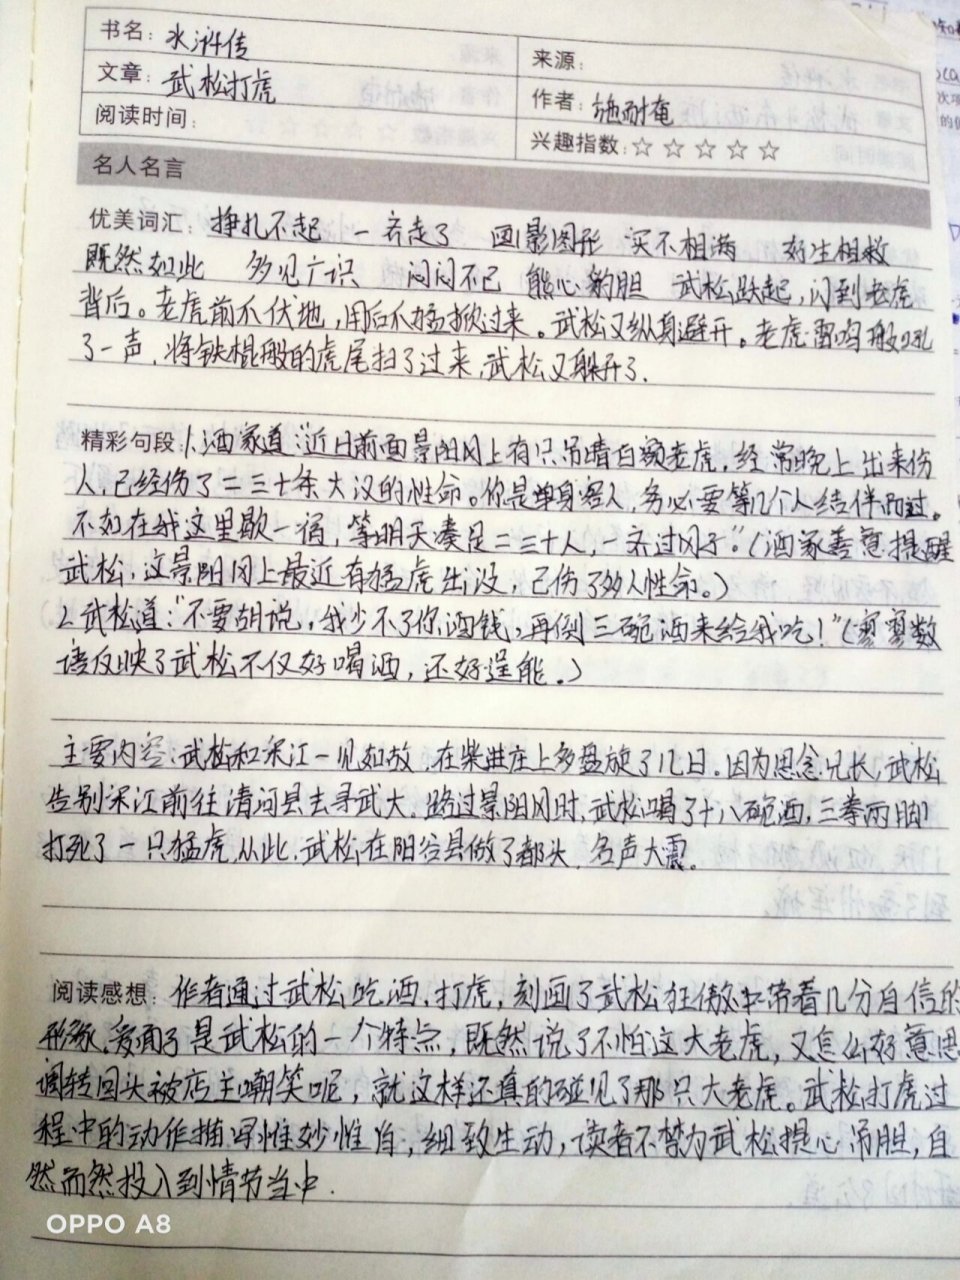 书名：水浒传
来源：
文章：武松打虎
作者：施耐庵
阅读时间：
兴趣指数：☆ ☆ ☆ ☆ ☆
名人名言
优美词汇：挣扎不起 一齐走了 画影图形 买不相满 好生相救
既然如此 多见广识 闷闷不已 熊心豹胆 武松跃起，闪到老虎
背后。老虎前爪伏地，用后爪猛掀过来。武松又纵身避开。老虎雷鸣般吼
了一声，将铁棍般的虎尾扫了过来，武松又躲开了.
精彩句段 1.酒家道：近日前面景阳冈上有只吊睛白额老虎，经常晚上出来伤
人，已经伤了二三十条大汉的性命。你是单身客人，务必要等几个人结伴而过。
不如在我这里歇一宿，等明天凑足二三十人，一齐过冈子。”（酒家善意提醒
武松，这景阳冈上最近有猛虎出没，已伤了多人性命。）
2.武松道：“不要胡说，我少不了你酒钱，再倒三碗酒来给我吃！”（寥寥数
语反映了武松不仅好喝酒，还好逞能。）
主要内容：武松和宋江一见如故，在柴进庄上多盘旋了几日。因为思念兄长，武松
告别宋江前往清河县去寻武大，路过景阳冈时，武松喝了十八碗酒，三拳两脚
打死了一只猛虎，从此，武松在阳谷县做了都头，名声大震。
阅读感想：作者通过武松吃酒，打虎，刻画了武松狂傲中带着几分自信的
形象，爱面子是武松的一个特点，既然说了不怕这大老虎，又怎么好意思
调转回头被店主嘲笑呢，就这样还真的碰见了那只大老虎。武松打虎过
程中的动作描写惟妙惟肖，细致生动，读者不禁为武松提心吊胆，自
然而然投入到情节当中.
OPPO A8